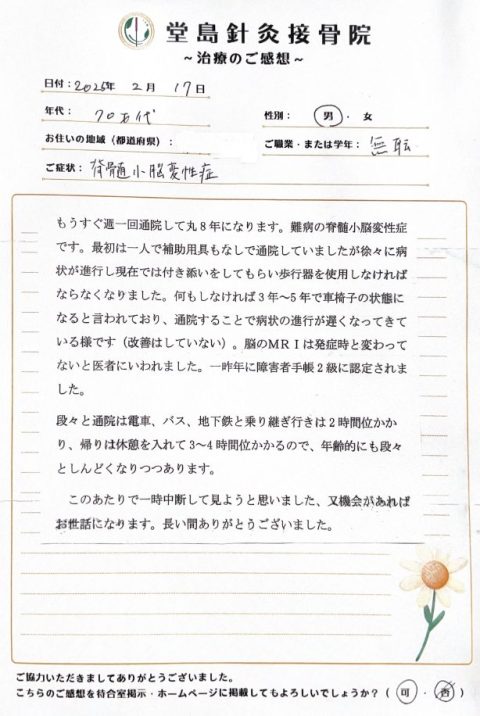 堂島針灸接骨院
~治療のご感想~
日付: 2025年 2月 17日
年代: 70才代
性別: 男・女
お住いの地域(都道府県):
ご職業・または学年: 無職
ご症状: 脊髄小脳変性症
もうすぐ週一回通院して丸8年になります。難病の脊髄小脳変性症
です。最初は一人で補助用具もなしで通院していましたが徐々に病
状が進行し現在では付き添いをしてもらい歩行器を使用しなければ
ならなくなりました。何もしなければ3年~5年で車椅子の状態に
なると言われており、通院することで病状の進行が遅くなってきて
いる様です(改善はしていない)。脳のMRIは発症時と変わって
ないと医者にいわれました。一昨年に障害者手帳2級に認定されま
した。
段々と通院は電車、バス、地下鉄と乗り継ぎ行きは2時間位かか
り、帰りは休憩を入れて3~4時間位かかるので、年齢的にも段々
としんどくなりつつあります。
このあたりで一時中断して見ようと思いました、又機会があれば
お世話になります。長い間ありがとうございました。
ご協力いただきましてありがとうございました。
こちらのご感想を待合室掲示・ホームページに掲載してもよろしいでしょうか?(可・否)